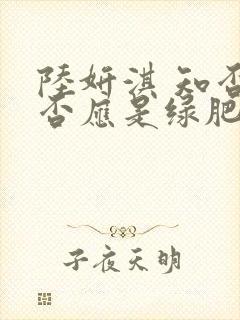 陸妍淇 知否
否应是绿肥
子夜天明